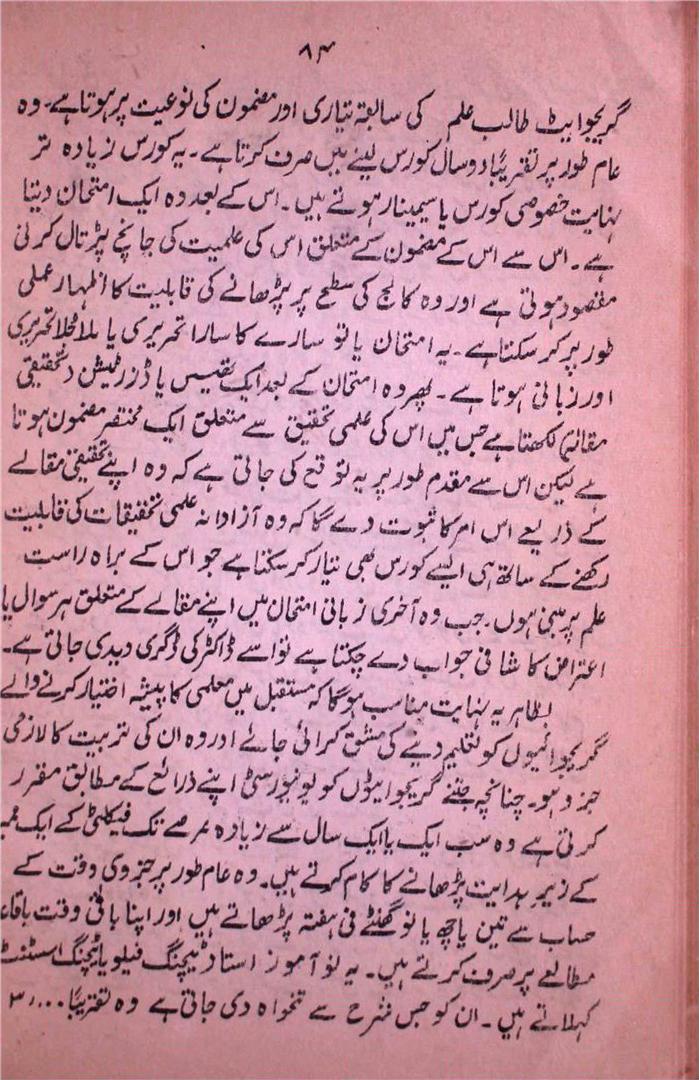 ۸۴
گریجوایٹ طالب علم کی سابقہ تیاری اور مضمون کی نوعیت پر ہوتا ہے۔ وہ
عام طور پر تقریباً دو سال کورس لینے میں صرف کرتا ہے۔ یہ کورس زیادہ تر
نہایت خصوصی کورس یا سیمینار ہوتے ہیں۔ اس کے بعد وہ ایک امتحان دیتا
ہے۔ اس سے اس کے مضمون کے متعلق اس کی علمیت کی جانچ پڑتال کرنی
مقصود ہوتی ہے اور وہ کالج کی سطح پر پڑھانے کی قابلیت کا اظہار عملی
طور پر کر سکتا ہے۔ یہ امتحان یا تو سارے کا سارا تحریری یا ملا جلا تحریری
اور زبانی ہوتا ہے۔ پھر وہ امتحان کے بعد ایک تھیسس یا ڈزرٹیشن د تحقیقی
مقالہ) لکھتا ہے جس میں اس کی علمی تحقیق سے متعلق ایک مختصر مضمون ہوتا
ہے لیکن اس سے مقدم طور پر یہ توقع کی جاتی ہے کہ وہ اپنے تحقیقی مقالے
کے ذریعے اس امر کا ثبوت دے گا کہ وہ آزادانہ علمی تحقیقات کی قابلیت
رکھنے کے ساتھ ہی ایسے کورس بھی تیار کر سکتا ہے جو اس کے براہ راست
علم پر مبنی ہوں۔ جب وہ آخری زبانی امتحان میں اپنے مقالے کے متعلق ہر سوال یا
اعتراض کا شافی جواب دے چکتا ہے تو اسے ڈاکٹر کی ڈگری دیدی جاتی ہے۔
بظاہر یہ نہایت مناسب ہو گا کہ مستقبل میں معلمی کا پیشہ اختیار کرنے والے
گریجوائیوں کو تعلیم دینے کی مشق کرائی جائے اور وہ ان کی تربیت کا لازمی
جزو ہو۔ چنانچہ جتنے گریجوایٹوں کو یونیورسٹی اپنے ذرائع کے مطابق مقرر
کرتی ہے وہ سب ایک یا ایک سال سے زیادہ عرصے تک فیکلٹی کے ایک
کے زیر ہدایت پڑھانے کا کام کرتے ہیں۔ وہ عام طور پر جزوی وقت کے
حساب سے تین یا چھ یا نو گھنٹے فی ہفتہ پڑھاتے ہیں اور اپنا باقی وقت
مطالعے پر صرف کرتے ہیں۔ یہ نو آموز استاد ٹیچنگ فیلو یا ٹیچنگ اسسٹنٹ
کہلاتے ہیں۔ ان کو جس شرح سے تنخواہ دی جاتی ہے وہ تقریباً ۳,۰۰۰